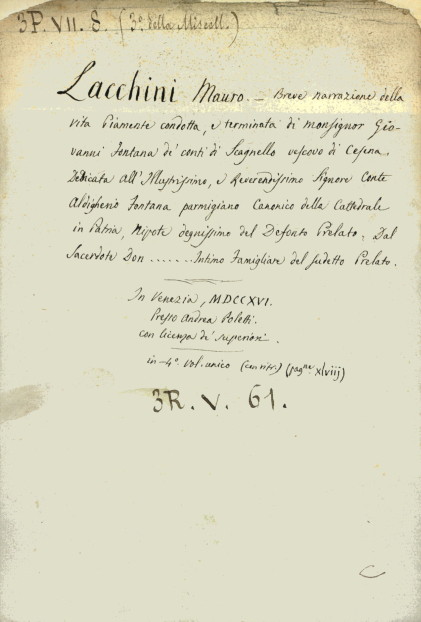 3P. VII. 8. (3º della Miscell.)
Lacchini Mauro. — Breve narrazione della
vita piamente condotta, e terminata di monsignor Gio-
vanni Fontana de' conti di Scagnello vescovo di Cesena.
Dedicata all'Illustrissimo, e Reverendissimo Signore Conte
Aldigherio Fontana parmigiano Canonico della Cattedrale
in Patria, Nipote degnissimo del Defonto Prelato. Dal
Sacerdote Don ....... Intimo Famigliare del sudetto Prelato.
In Venezia, MDCCXVI.
Presso Andrea Poletti.
con licenza de' superiori.
in-4º. vol. unico (con ritr.) (pagne xlviij)
3R. V. 61.